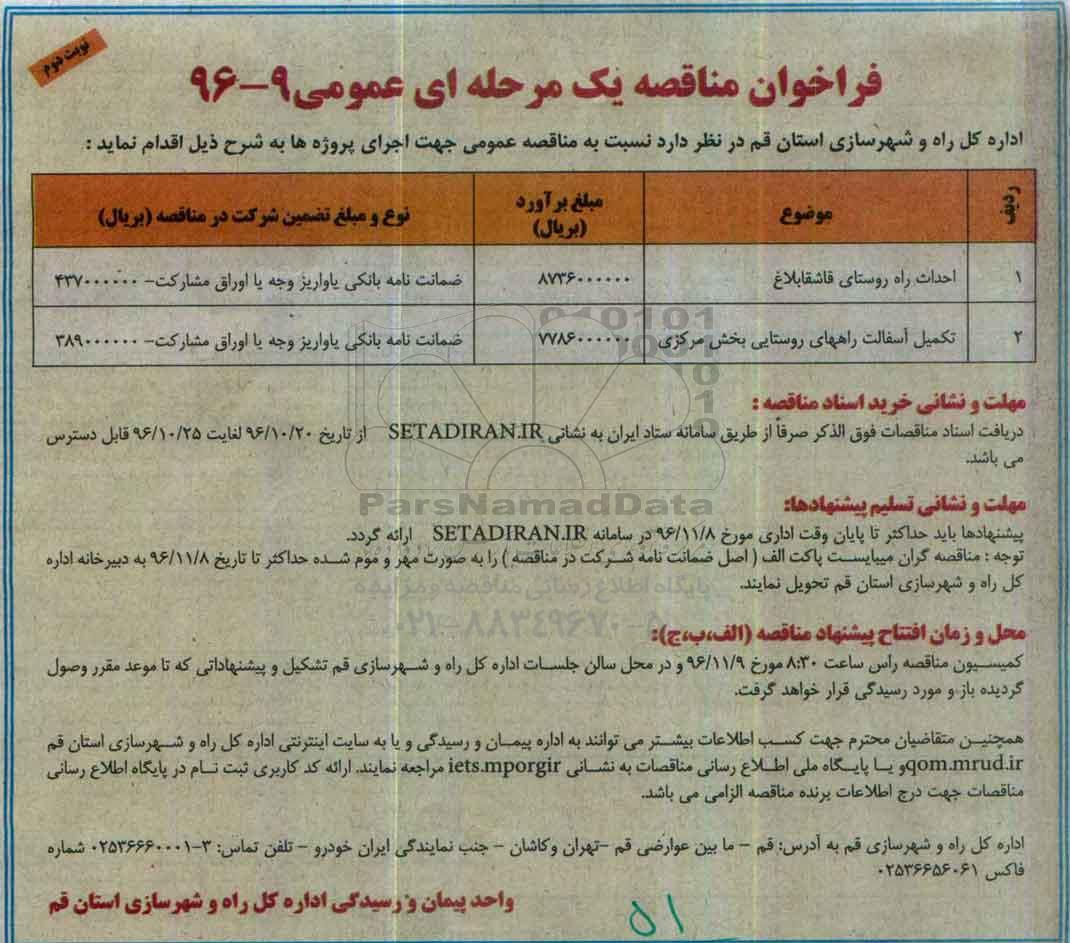 نوبت دوم
فراخوان مناقصه یک مرحله ای عمومی۹-۹۶
اداره کل راه و شهرسازی استان قم در نظر دارد نسبت به مناقصه عمومی جهت اجرای پروژه ها به شرح ذیل اقدام نماید :
ردیف موضوع مبلغ برآورد (بریال) نوع و مبلغ تضمین شرکت در مناقصه (بریال)
۱ احداث راه روستای قاشقابلاغ ۸۷۳۶۰۰۰۰۰۰ ضمانت نامه بانکی یاواریز وجه یا اوراق مشارکت- ۴۳۷۰۰۰۰۰۰
۲ تکمیل آسفالت راههای روستایی بخش مرکزی ۷۷۸۶۰۰۰۰۰۰ ضمانت نامه بانکی یاواریز وجه یا اوراق مشارکت- ۳۸۹۰۰۰۰۰۰
مهلت و نشانی خرید اسناد مناقصه :
دریافت اسناد مناقصات فوق الذکر صرفاً از طریق سامانه ستاد ایران به نشانی SETADIRAN.IR از تاریخ ۹۶/۱۰/۲۰ لغایت ۹۶/۱۰/۲۵ قابل دسترس
می باشد.
ParsNamadData
مهلت و نشانی تسلیم پیشنهادها:
پیشنهادها باید حداکثر تا پایان وقت اداری مورخ ۹۶/۱۱/۸ در سامانه SETADIRAN.IR ارائه گردد.
توجه : مناقصه گران میبایست پاکت الف ( اصل ضمانت نامه شرکت در مناقصه ) را به صورت مهر و موم شده حداکثر تا تاریخ ۹۶/۱۱/۸ به دبیرخانه اداره
کل راه و شهرسازی استان قم تحویل نمایند.
پایگاه اطلاع رسانی مناقصه و مزایده
۰۲۱-۸۸۳۴۹۶۷۰-۵
محل و زمان افتتاح پیشنهاد مناقصه (الف،ب،ج):
کمیسیون مناقصه راس ساعت ۸:۳۰ مورخ ۹۶/۱۱/۹ و در محل سالن جلسات اداره کل راه و شهرسازی قم تشکیل و پیشنهاداتی که تا موعد مقرر وصول
گردیده باز و مورد رسیدگی قرار خواهد گرفت.
همچنین متقاضیان محترم جهت کسب اطلاعات بیشتر می توانند به اداره پیمان و رسیدگی و یا به سایت اینترنتی اداره کل راه و شهرسازی استان قم
qom.mrud.irو یا پایگاه ملی اطلاع رسانی مناقصات به نشانی iets.mporgir مراجعه نمایند. ارائه کد کاربری ثبت نام در پایگاه اطلاع رسانی
مناقصات جهت درج اطلاعات برنده مناقصه الزامی می باشد.
اداره کل راه و شهرسازی قم به آدرس: قم - ما بین عوارضی قم -تهران وکاشان - جنب نمایندگی ایران خودرو - تلفن تماس: ۳-۰۲۵۳۶۶۶۰۰۰۱ شماره
فاکس ۰۲۵۳۶۶۵۶۰۶۱
واحد پیمان و رسیدگی اداره کل راه و شهرسازی استان قم
۵۱